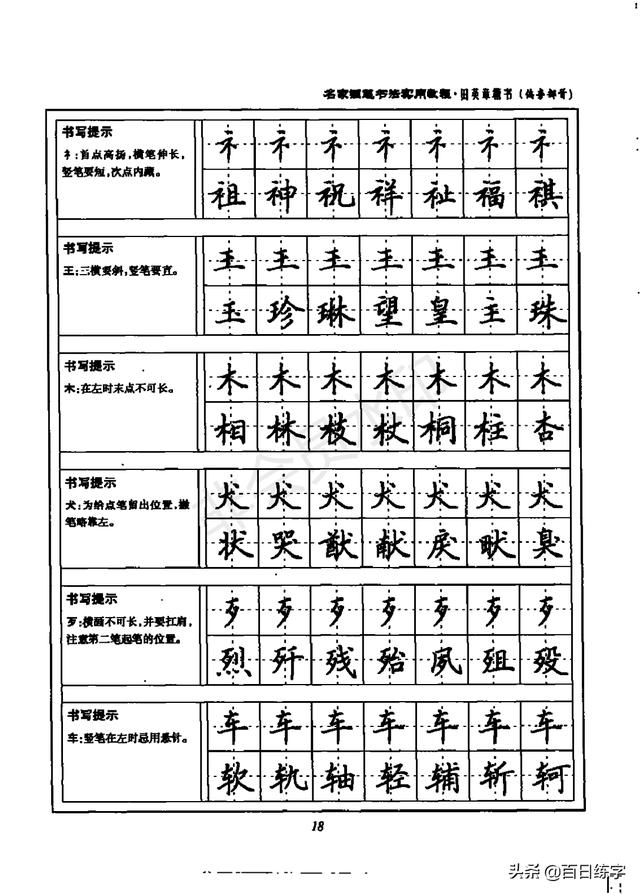 名家硬笔书法实用教程·田英章楷书(偏旁部首)
书写提示
礻:首点高扬,横笔伸长,
竖笔要短,次点内藏。
礻礻礻礻礻礻礻
祖神祝祥祉福祺
书写提示
王:三横要斜,竖笔要直。
王王王王王王王
玉珍琳望皇主珠
书写提示
木:在左时末点不可长。
木木木木木木木
相林枝杖桐柱杏
书写提示
犬:为给点笔留出位置,撇
笔略靠左。
犬犬犬犬犬犬犬
状哭猷献戾畎臭
书写提示
歹:横画不可长,并要扛肩,
注意第二笔起笔的位置。
歹歹歹歹歹歹歹
烈歼残殆夙殂殁
书写提示
车:竖笔在左时忌用悬针。
车车车车车车车
软轨轴轻辅斩轲
非会员水印
18
头条 @百日练字